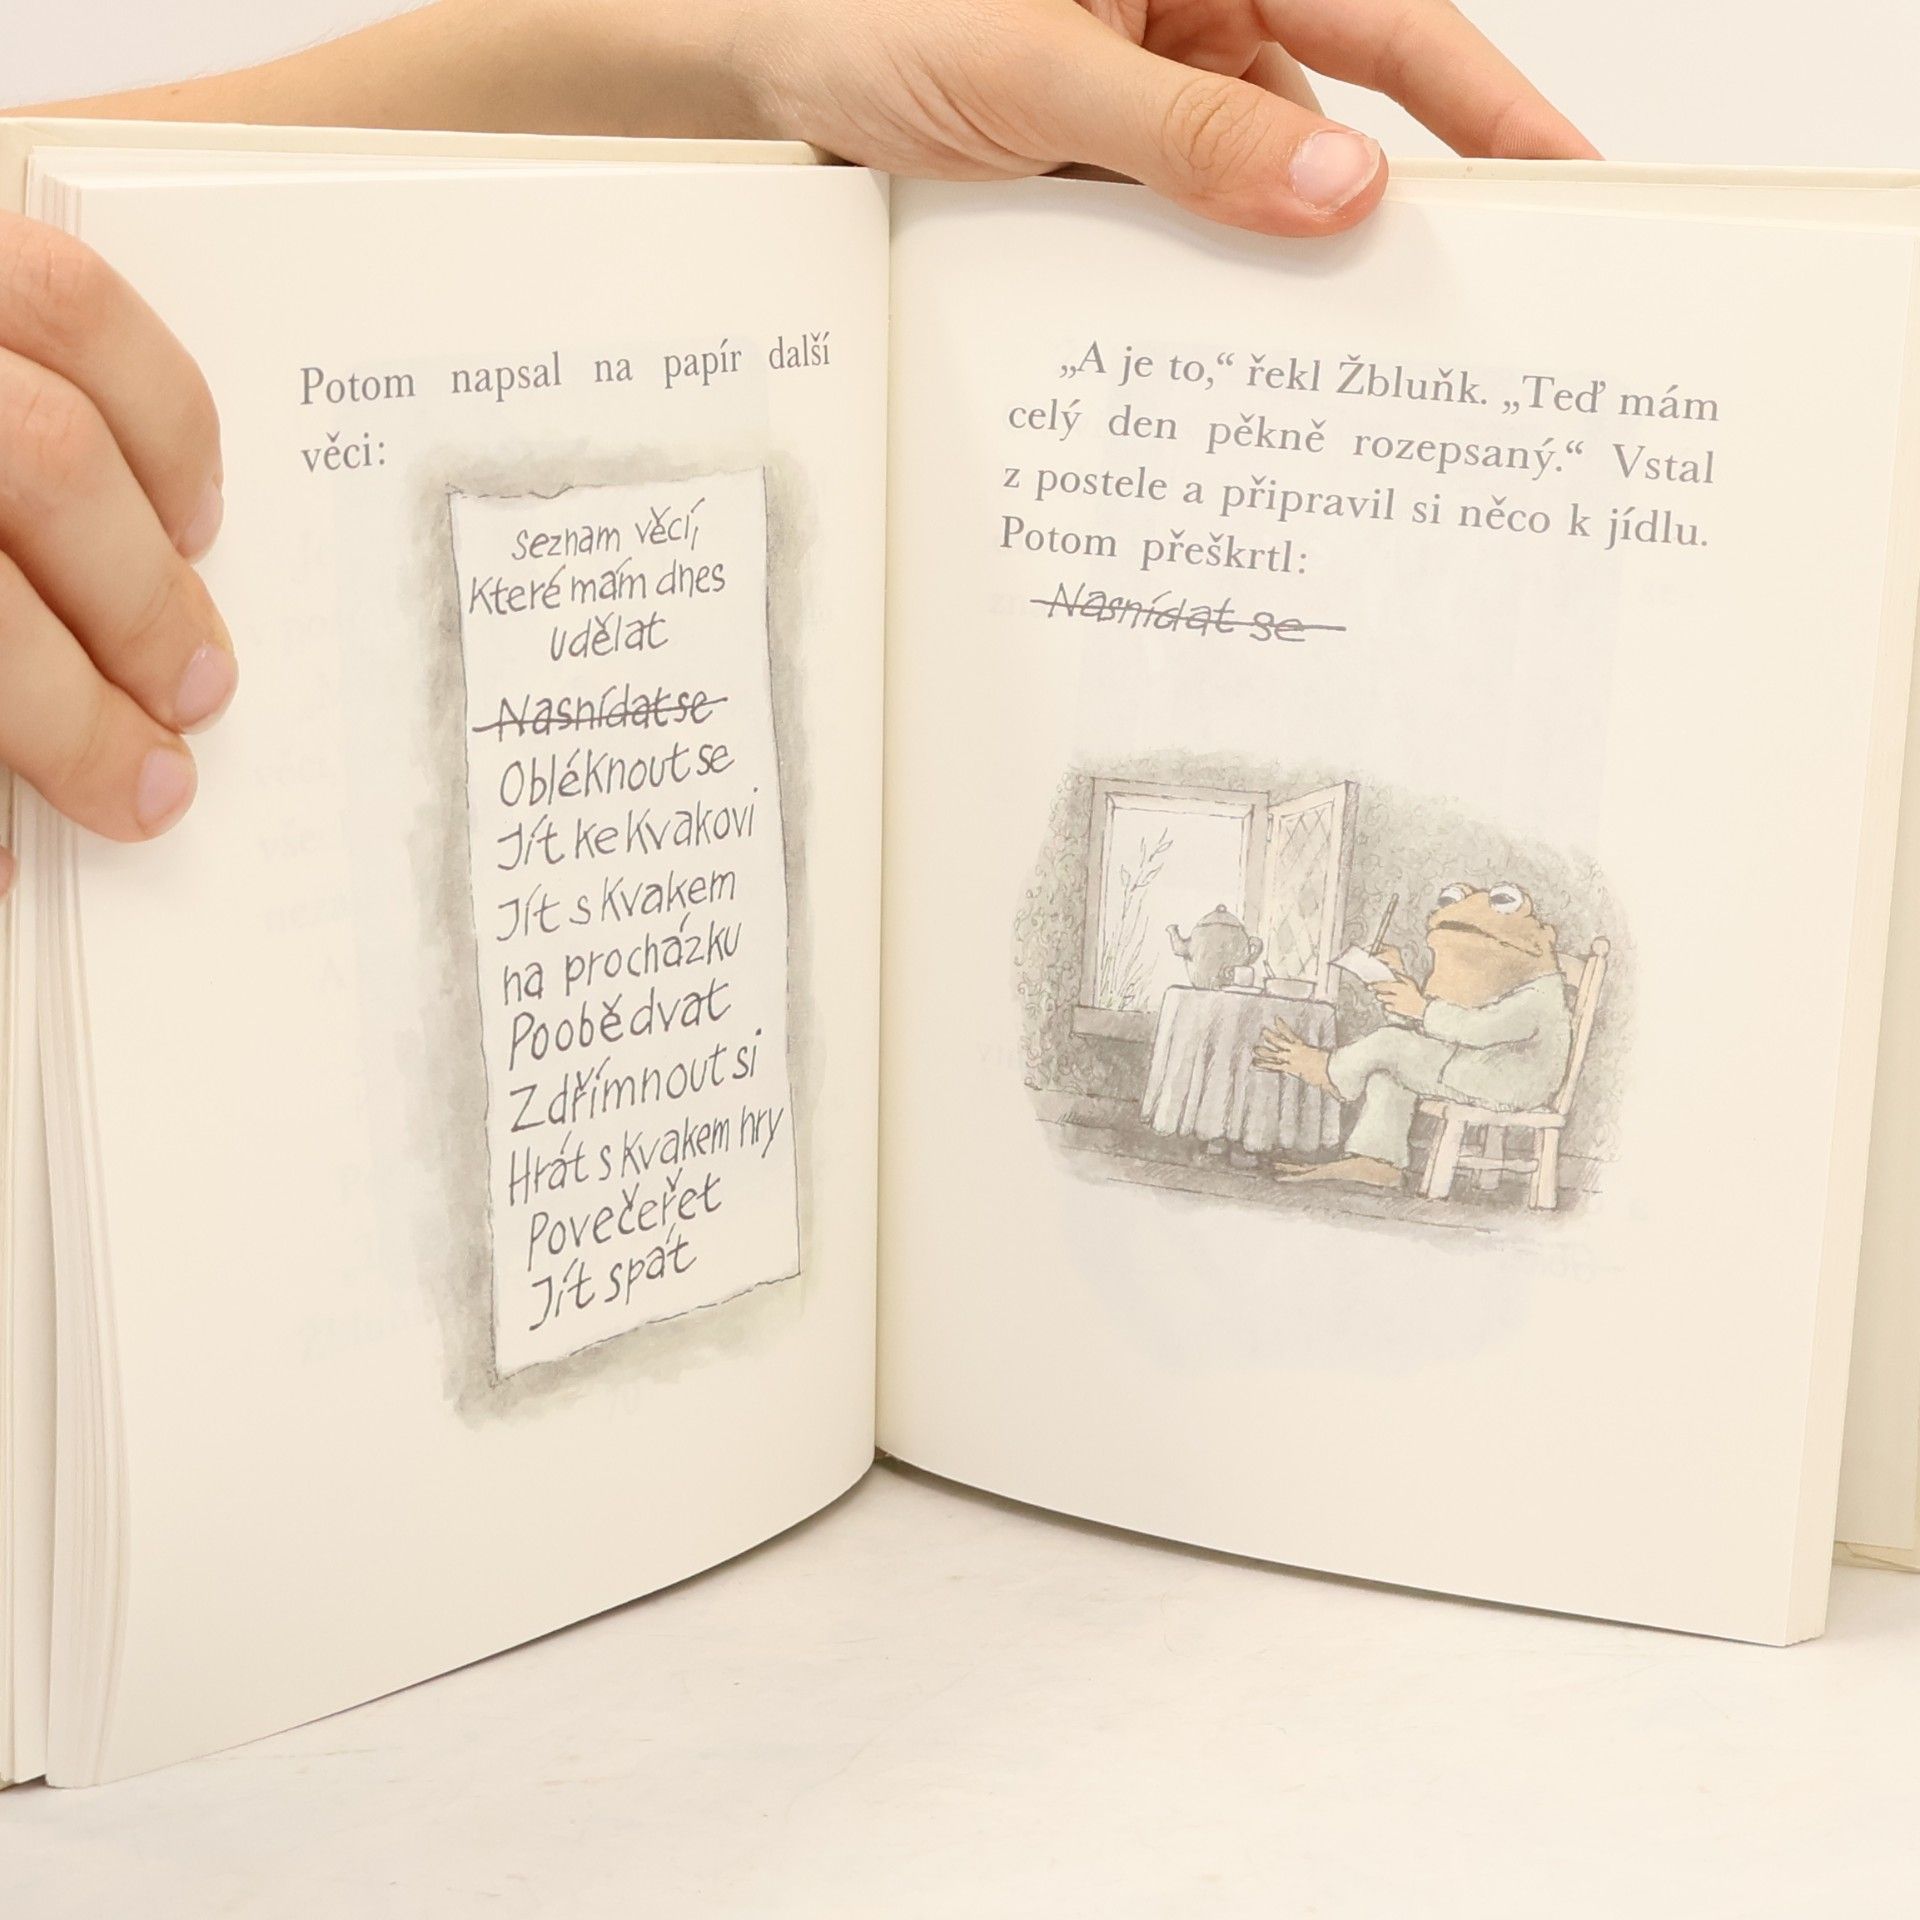 Potom napsal na papír další
věci:
seznam věcí,
které mám dnes
udělat
Nasnídat se
Obléknout se
Jít ke Kvakovi
Jít s Kvakem
na procházku
Poobědvat
Zdřímnout si
Hrát s Kvakem hry
Povečeřet
Jít spát
„A je to,“ řekl Žbluňk. „Teď mám
celý den pěkně rozepsaný.“ Vstal
z postele a připravil si něco k jídlu.
Potom přeškrtl:
Nasnídat se